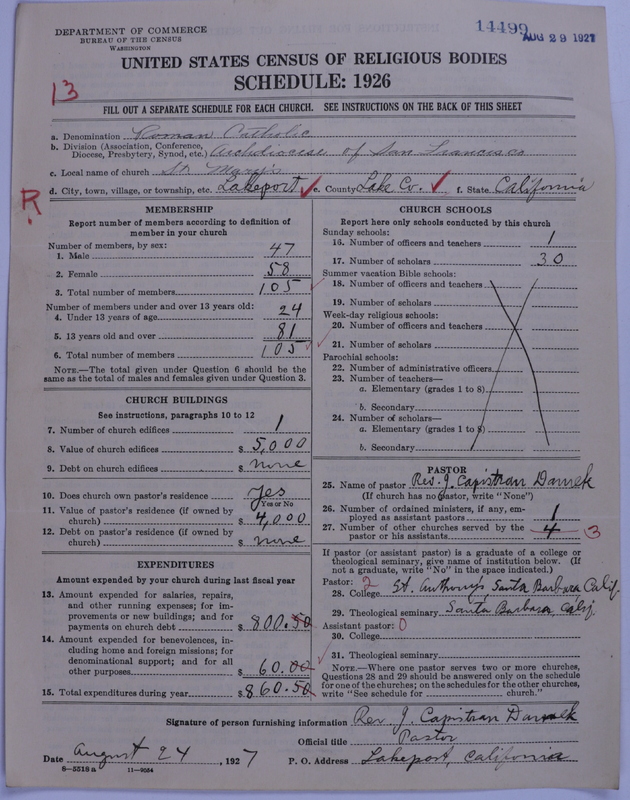 DEPARTMENT OF COMMERCE
BUREAU OF THE CENSUS
WASHINGTON
14499
AUG 29 1927
UNITED STATES CENSUS OF RELIGIOUS BODIES
SCHEDULE: 1926
13
FILL OUT A SEPARATE SCHEDULE FOR EACH CHURCH. SEE INSTRUCTIONS ON THE BACK OF THIS SHEET
a. Denomination Roman Catholic
b. Division (Association, Conference, Diocese, Presbytery, Synod, etc.) Archdiocese of San Francisco
c. Local name of church St. Mary's
d. City, town, village, or township, etc. Lakeport e. County Lake Co. f. State California
R
MEMBERSHIP
Report number of members according to definition of
member in your church
Number of members, by sex:
1. Male 47
2. Female 58
3. Total number of members 105
Number of members under and over 13 years old:
4. Under 13 years of age 24
5. 13 years old and over 81
6. Total number of members 105
NOTE.—The total given under Question 6 should be the
same as the total of males and females given under Question 3.
CHURCH BUILDINGS
See instructions, paragraphs 10 to 12
7. Number of church edifices 1
8. Value of church edifices $ 5,000
9. Debt on church edifices $ none
10. Does church own pastor's residence yes
Yes or No
11. Value of pastor's residence (if owned by
church) $ 4,000
12. Debt on pastor's residence (if owned by
church) $ none
EXPENDITURES
Amount expended by your church during last fiscal year
13. Amount expended for salaries, repairs,
and other running expenses; for im-
provements or new buildings; and for
payments on church debt $ 800.50
14. Amount expended for benevolences, in-
cluding home and foreign missions; for
denominational support; and for all
other purposes $ 60.00
15. Total expenditures during year $ 860.50
CHURCH SCHOOLS
Report here only schools conducted by this church
Sunday schools:
16. Number of officers and teachers 1
17. Number of scholars 30
Summer vacation Bible schools:
18. Number of officers and teachers
19. Number of scholars
Week-day religious schools:
20. Number of officers and teachers
21. Number of scholars
Parochial schools:
22. Number of administrative officers
23. Number of teachers—
a. Elementary (grades 1 to 8)
b. Secondary
24. Number of scholars—
a. Elementary (grades 1 to 8)
b. Secondary
PASTOR
25. Name of pastor Rev. J. Capistran Damek
(If church has no pastor, write "None")
26. Number of ordained ministers, if any, em-
ployed as assistant pastors 1
27. Number of other churches served by the
pastor or his assistants 4 3
If pastor (or assistant pastor) is a graduate of a college or
theological seminary, give name of institution below. (If
not a graduate, write "No" in the space indicated.)
Pastor: 2
28. College St. Anthony's, Santa Barbara Calif.
29. Theological seminary Santa Barbara, Calif.
Assistant pastor: 0
30. College
31. Theological seminary
NOTE.—Where one pastor serves two or more churches,
Questions 28 and 29 should be answered only on the schedule
for one of the churches; on the schedules for the other churches,
write "See schedule for church."
Signature of person furnishing information Rev. J. Capistran Damek
Official title Pastor
Date August 24, 1927 P. O. Address Lakeport, California
8—5518 a 11—9054